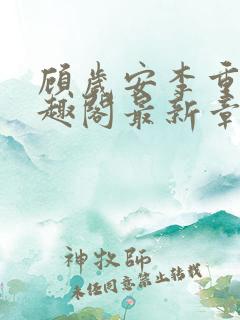 顾岁安李重
趣阁最新章
神牧师
未经同意禁止转载